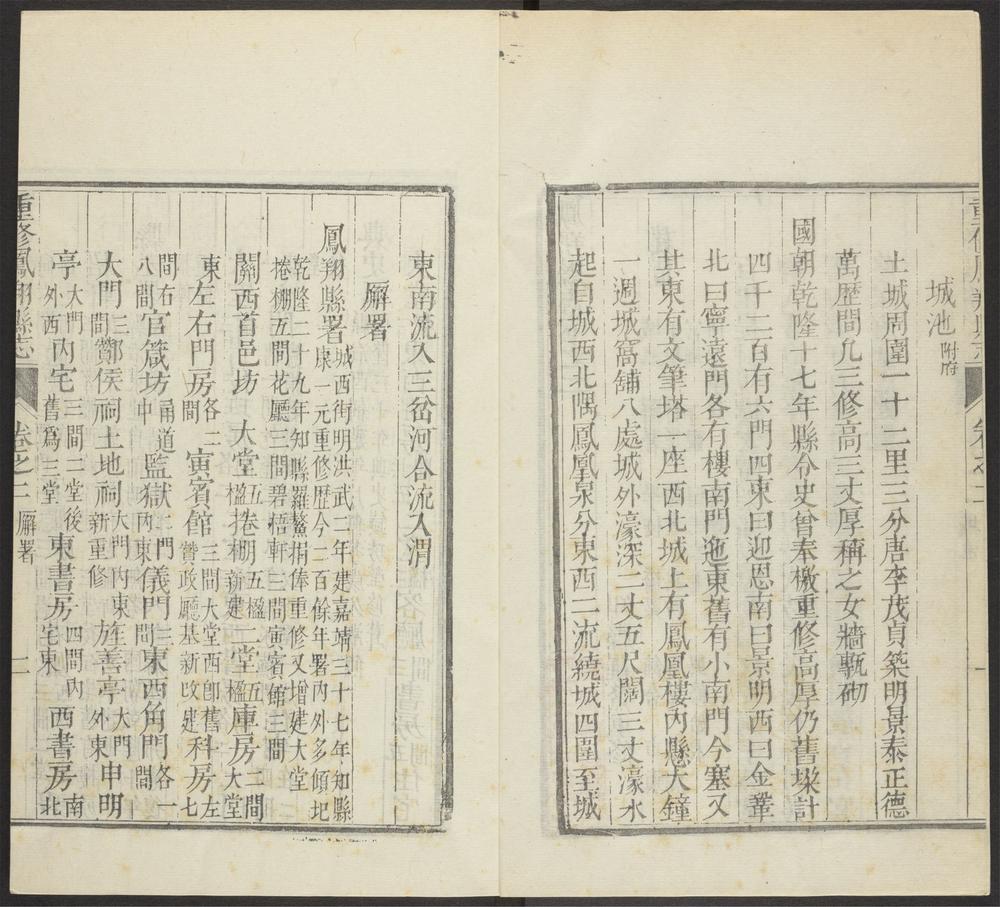 城池附府
土城周圍一十二里三分唐李茂貞築明景泰正德
萬歷間凡三修高三丈厚稱之女牆甎砌
國朝乾隆十七年縣令史曾奉檄重修高厚仍舊垜計
四千二百有六門四東曰迎恩南曰景明西曰金鞏
北曰寧遠門各有樓南門迤東舊有小南門今塞又
其東有文筆塔一座西北城上有鳳凰樓內懸大鐘
一週城窩舖八處城外濠深二丈五尺闊三丈濠水
起自城西北隅鳳凰泉分東西二流繞城四圍至城
東南流入三岔河合流入渭
廨署
鳳翔縣署城西街明洪武二年建嘉靖三十七年知縣康一元重修歷今二百餘年署內外多傾圮
乾隆二十九年知縣羅鰲捐俸重修又增建大堂捲棚五間花廳三間碧梧軒三間寅賓館三間
關西首邑坊 大堂五楹捲棚五楹新建二堂五楹庫房二間大堂
東左右門房各二間寅賓館三間大堂西卽舊贊政廳基新改建科房左七
間右八間官箴坊甬道中監獄二門內東儀門三間東西角門各一間
大門三間酇侯祠土地祠大門內東新重修旌善亭大門外東申明
亭大門外西內宅三間二堂後舊爲三堂東書房四間內宅東西書房南北
重修鳳翔縣志 卷之二 廨署 二